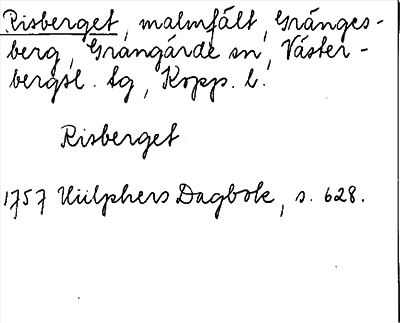 Risberget, malmfält, Gränges-
berg, Grangärde sn, Väster-
bergsl. tg, Kopp. l.
Risberget
1757 Hülphers Dagbok, s. 628.